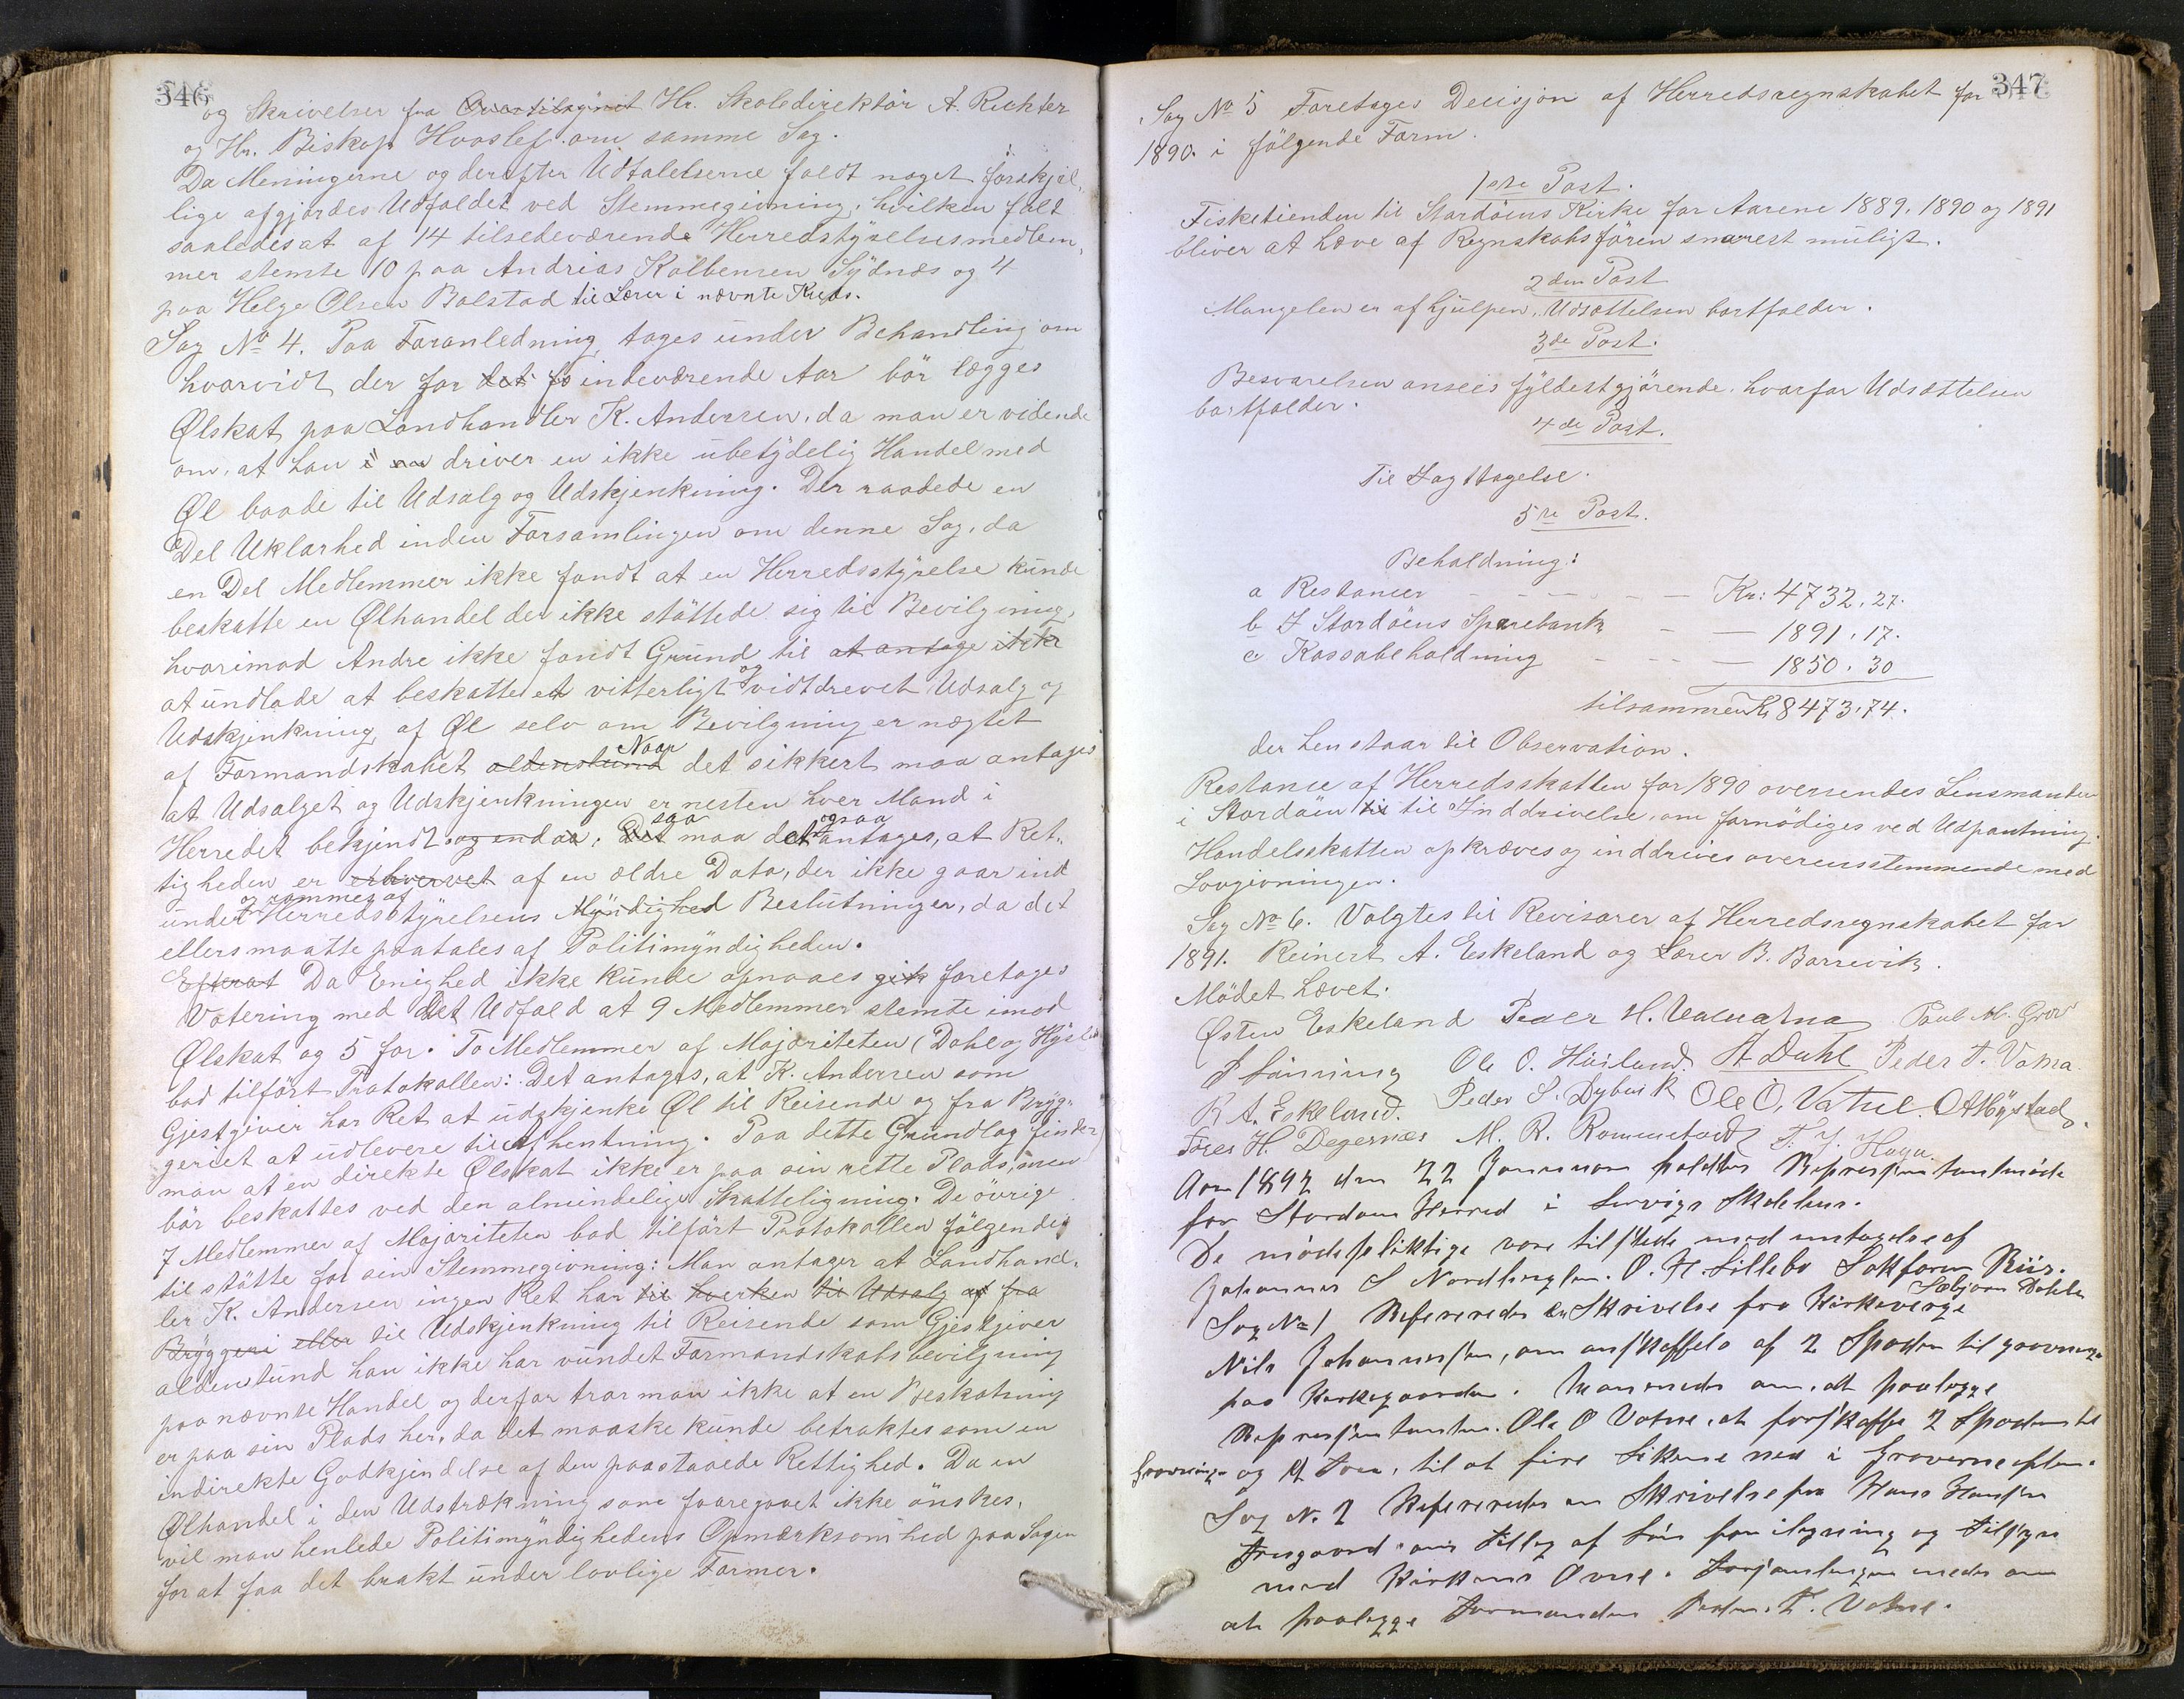 346
og Skrivelser fra Overtilsynet Hr. Skoledirektör A. Richter
og Hr. Biskop Hvoslef om samme Sag.
Da Meningerne og derefter Udtalelserne faldt noget forskjæl,
lige afgjordes Udfaldet ved Stemmegivning, hvilken falt
saaledes at af 14 tilstedeværende Herredstyrelsesmedlem,
mer stemte 10 paa Andrias Kolbensen Sydnæs og 4
paa Helge Olsen Bolstad til Lærer i nævnte Kreds.
Sag No 4. Paa Foranledning tages under Behandling om
hvorvidt der for det fo indeværende Aar bör lægges
Ølskat paa Landhandler K. Andersen, da man er vidende
om, at han i en driver en ikke ubetydelig Handel med
Øl baade til Udsalg og Udskjenkning. Der raadede en
Del Uklarhed inden Forsamlingen om denne Sag, da
en Del Medlemmer ikke fandt at en Herredsstyrelse kunde
beskatte en Ølhandel der ikke stöttede sig til Bevilgning,
hvorimod Andre ikke fandt Grund til at antage ikke
at undlade at beskatte et vitterligt og vidtdrevet Udsalg og
Udskjenkning af Øl selv om Bevilgning er nægtet
af Formandskabet aldenstund Naar det sikkert maa antages
at Udsalget og Udskjenkningen er nesten hver Mand i
Herredet bekjendt og endda; Det saa maa det ogsaa antages, at Ret,
tigheden er erhvervet af en ældre Dato, der ikke gaar ind
under og rammes af Herredsstyrelsens Myndighed Beslutninger, da det
ellers maatte paatales af Politimyndigheden.
Efterat Da Enighed ikke kunde opnaaes gik foretages
Votering med det Udfald at 9 Medlemmer stemte imod
Ølskat og 5 for. To Medlemmer af Majoriteten (Dahl og Hystad
bad tilfört Protokollen: Det antages, at K. Andersen som
Gjestgiver har Ret at udskjenke Øl til Reisende og fra Bryg-
geriet at udlevere til Afhentning. Paa dette Grundlag finder
man at en direkte Ølskat ikke er paa sin rette Plads, men
bör beskattes ved den almindelige Skatteligning. De övrige
7 Medlemmer af Majoriteten bad tilfört Protokollen fölgende
til stötte for sin Stemmegivning: Man antager at Landhand-
ler K. Andersen ingen Ret har til hverken til Udsalg af fra
Bryggeri eller til Udskjenkning til Reisende som Gjestgiver
aldenstund han ikke har vundet Formandskabsbevilgning
paa nævnte Handel og derfor tror man ikke at en Beskatning
er paa sin Plads her, da det maaske kunde betraktes som en
indirekte Godkjendelse af den paastaaede Rettighed. Da en
Ølhandel i den Udstrækning som foregaaet ikke önskes,
vil man henlede Politimyndighedens Opmærksomhed paa Sagen
for at faa det brakt under lovlige Former.
347
Sag No 5 Foretages Decisjon af Herredsregnskabet for
1890 i fölgende Form.
1ste Post.
Fisketienden til Stordöens Kirke for Aarene 1889, 1890 og 1891
bliver at hæve af Regnskabsfören snarest muligt.
2den Post
Mangelen er afhjulpen, Udsættelsen bortfalder.
3de Post.
Besvarelsen ansees fyldestgjörende, hvorfor Udsættelsen
bortfalder.
4de Post.
Til Iagttagelse.
5te Post.
Beholdning:
a Restancer - - - - - Kr: 4732,27.
b I Stordöens Sparebank - - 1891,17.
c Kassabeholdning - - - 1850.30
tilsammen Kr 8473,74.
der henstaar til Observation.
Restance af Herredsskatten for 1890 oversendes Lensmanden
i Stordöen til til Inddrivelse, om fornödiges ved Udpantning.
Handelsskatten opkræves og inddrives overensstemmende med
Lovgivningen.
Sag No 6. Valgtes til Revisorer af Herredsregnskabet for
1891. Reinert A. Eskeland og Lærer B. Borrevik.
Mödet hævet.
Østen Eskeland Peder H. Paul M.
Ole O. A Dahl Peder T. Vatna
R A. Eskeland. Peder S. Dybvik Ole O. Vatne. O Høystad
H. Degernæs M. R. Rommetvedt
Aar 1892 den 22 Januar holdtes Representantmöde
for Stordøens Herred i Lervigs Skolehus.
De mödepliktige vare tilstede med undtagelse af
Johannes S O. H. Lillebø
Sag No 1 Refereredes en Skrivelse fra Kirkeverge
Nils Johannessen, om anskaffelse af 2 Spader til gravning
paa Kirkegaarden. enedes om, at paalegge
Representanten Ole O Vatne, at forskaffe 2 Spader til
Gravning og 2 til at fire Likene ned i Gravene efter.
Sag No 2 Refereredes en Skrivelse fra Hans Hansen
om tillæg af Lön for ilægning og tilsyn
med Kirkens Ovne. Forsamlingen enedes om
at paalegge Formanden Peder T. Vatne.